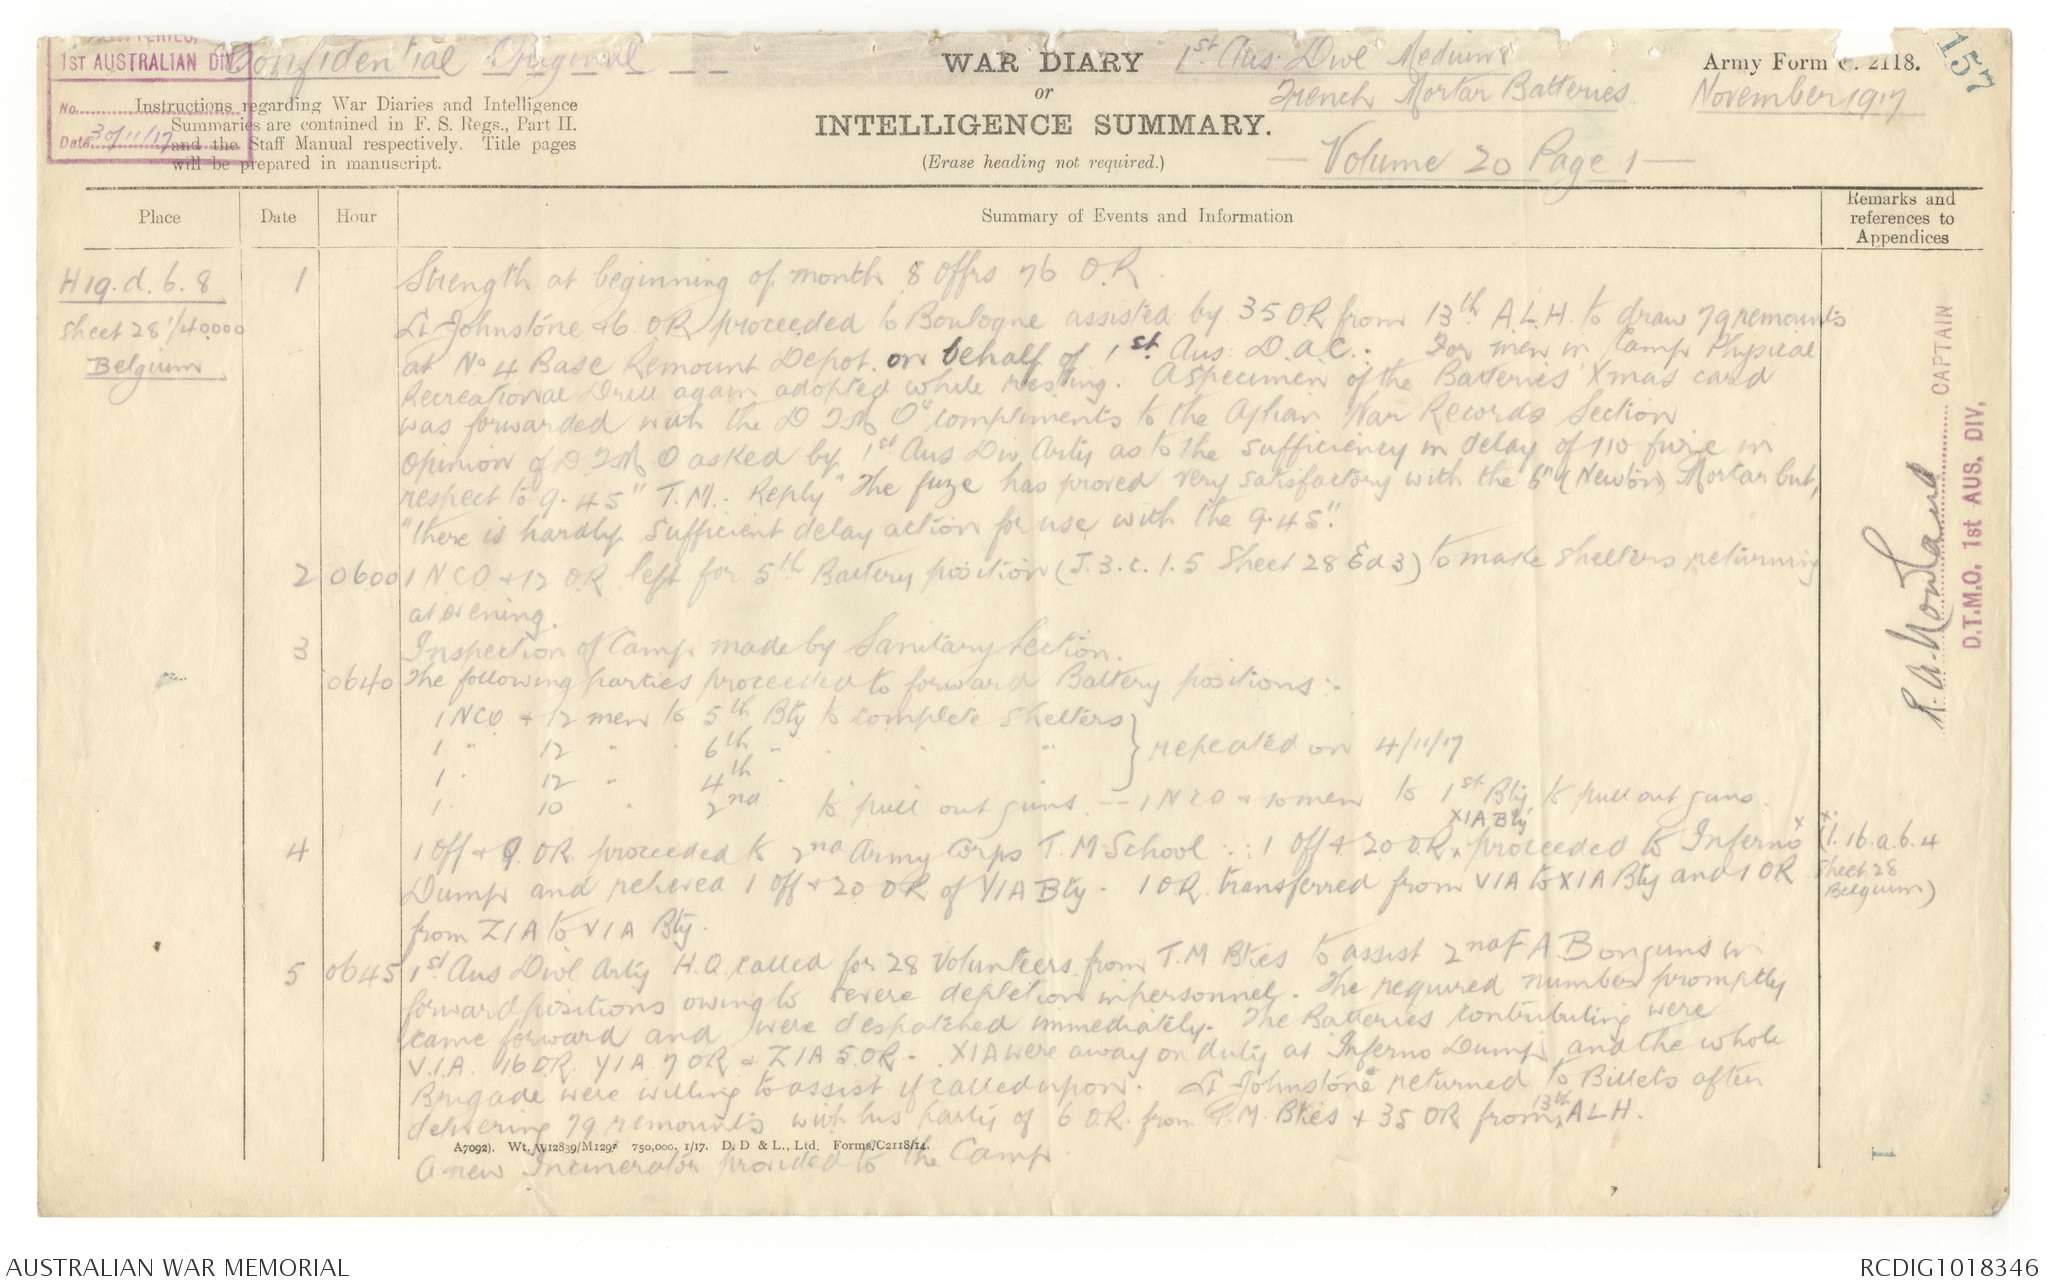 1ST AUSTRALIAN DIV.
No.
Date 30/11/17
Confidential Original
WAR DIARY
or
INTELLIGENCE SUMMARY.
(Erase heading not required.)
1st Aus: Divl Medium
Trench Mortar Batteries
November 1917
Volume 20 Page 1
Army Form C. 2118.
157
Instructions regarding War Diaries and Intelligence
Summaries are contained in F. S. Regs., Part II.
and the Staff Manual respectively. Title pages
will be prepared in manuscript.
Place Date Hour Summary of Events and Information Remarks and references to Appendices
H19.d.6.8
Sheet 28 1/40000
Belgium
1 Strength at beginning of month 8 Offrs 76 O.R.
Lt Johnstone & 6 O.R proceeded to Boulogne assisted by 35 O.R from 13th A.L.H. to draw 79 remounts
at No 4 Base Remount Depot on behalf of 1st Aus: D.A.C.: For men in Camp Physical
Recreational Drill again adopted while resting. A specimen of the Batteries' Xmas card
was forwarded with the D T M O's compliments to the A War Records Section
Opinion of D T M O asked by 1st Aus Div Arty as to the sufficiency in delay of 110 fuze in
respect to 9.45" T.M.: Reply "The fuze has proved very satisfactory with the 6" (Newton) Mortar but,
"there is hardly sufficient delay action for use with the 9.45".
2 0600 1 NCO & 12 OR left for 5th Battery position (J.3.c.1.5 Sheet 28 Ed 3) to make shelters returning
at evening.
3 Inspection of Camp made by Sanitary Section.
0640 The following parties proceeded to forward Battery positions:-
1 NCO & 12 men to 5th Bty to complete shelters
1 " 12 " " 6th " " " " } repeated on 4/11/17
1 " 12 " 4th "
1 10 " 2nd to pull out guns — 1 NCO & 10 men to 1st Bty to pull out guns.
4 1 Off & 9 OR proceeded to 2nd Army Corps T.M School :: 1 Off & 20 OR XIA Bty proceeded to Inferno x
Dump and relieved 1 Off & 20 OR of YIA Bty. 1 OR transferred from VIA to XIA Bty and 1 OR
from ZIA to VIA Bty.
x (I.16.a.6.4
Sheet 28
Belgium)
5 0645 1st Aus Divl Arty H.Q. called for 28 Volunteers from T.M Bties to assist 2nd F A B on guns in
forward positions owing to severe depletion in personnel. The required number promptly
came forward and were despatched immediately. The Batteries contributing were
V.I.A. 16 OR. YIA. 7 OR & ZIA 5 OR. XIA were away on duty at Inferno Dump and the whole
Brigade were willing to assist if called upon. Lt Johnstone returned to Billets after
delivering 79 remounts with his party of 6 O.R. from T.M. Btries & 35 OR from 13th A L H.
A new Incinerator provided to the Camp
A7092). Wt. W12839/M1297 750,000. 1/17. D. D & L., Ltd. Forms/C2118/14.
CAPTAIN
D.T.M.O. 1st AUS. DIV.
AUSTRALIAN WAR MEMORIAL
RCDIG1018346